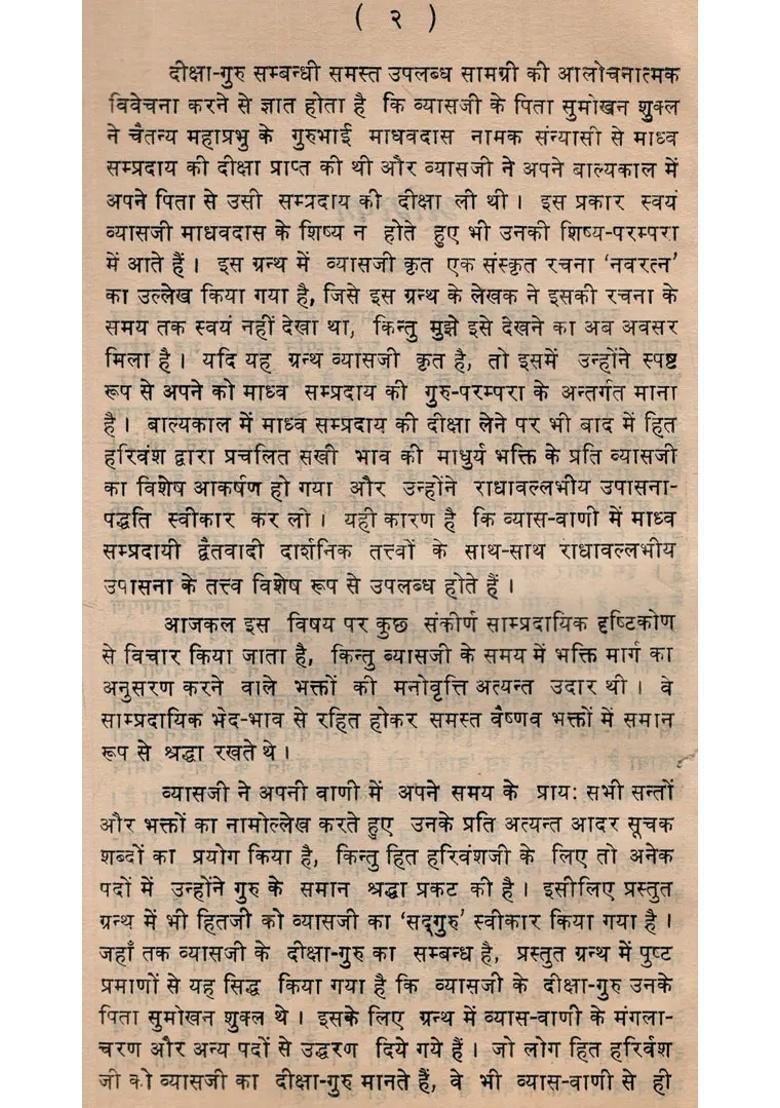 ( २ )
दीक्षा-गुरु सम्बन्धी समस्त उपलब्ध सामग्री की आलोचनात्मक
विवेचना करने से ज्ञात होता है कि व्यासजी के पिता सुमोखन शुक्ल
ने चैतन्य महाप्रभु के गुरुभाई माधवदास नामक संन्यासी से माध्व
सम्प्रदाय की दीक्षा प्राप्त की थी और व्यासजी ने अपने बाल्यकाल में
अपने पिता से उसी सम्प्रदाय की दीक्षा ली थी । इस प्रकार स्वयं
व्यासजी माधवदास के शिष्य न होते हुए भी उनकी शिष्य-परम्परा
में आते हैं । इस ग्रन्थ में व्यासजी कृत एक संस्कृत रचना ‘नवरत्न’
का उल्लेख किया गया है, जिसे इस ग्रन्थ के लेखक ने इसकी रचना के
समय तक स्वयं नहीं देखा था, किन्तु मुझे इसे देखने का अब अवसर
मिला है । यदि यह ग्रन्थ व्यासजी कृत है, तो इसमें उन्होंने स्पष्ट
रूप से अपने को माध्व सम्प्रदाय की गुरु-परम्परा के अन्तर्गत माना
है । बाल्यकाल में माध्व सम्प्रदाय की दीक्षा लेने पर भी बाद में हित
हरिवंश द्वारा प्रचलित सखी भाव की माधुर्य भक्ति के प्रति व्यासजी
का विशेष आकर्षण हो गया और उन्होंने राधावल्लभीय उपासना-
पद्धति स्वीकार कर लो । यही कारण है कि व्यास-वाणी में माध्व
सम्प्रदायी द्वैतवादी दार्शनिक तत्त्वों के साथ-साथ राधावल्लभीय
उपासना के तत्त्व विशेष रूप से उपलब्ध होते हैं ।
आजकल इस विषय पर कुछ संकीर्ण साम्प्रदायिक दृष्टिकोण
से विचार किया जाता है, किन्तु व्यासजी के समय में भक्ति मार्ग का
अनुसरण करने वाले भक्तों की मनोवृत्ति अत्यन्त उदार थी । वे
साम्प्रदायिक भेद-भाव से रहित होकर समस्त वैष्णव भक्तों में समान
रूप से श्रद्धा रखते थे ।
व्यासजी ने अपनी वाणी में अपने समय के प्राय: सभी सन्तों
और भक्तों का नामोल्लेख करते हुए उनके प्रति अत्यन्त आदर सूचक
शब्दों का प्रयोग किया है, किन्तु हित हरिवंशजी के लिए तो अनेक
पदों में उन्होंने गुरु के समान श्रद्धा प्रकट की है । इसीलिए प्रस्तुत
ग्रन्थ में भी हितजी को व्यासजी का ‘सद्गुरु’ स्वीकार किया गया है ।
जहाँ तक व्यासजी के दीक्षा-गुरु का सम्बन्ध है, प्रस्तुत ग्रन्थ में पुष्ट
प्रमाणों से यह सिद्ध किया गया है कि व्यासजी के दीक्षा-गुरु उनके
पिता सुमोखन शुक्ल थे । इसके लिए ग्रन्थ में व्यास-वाणी के मंगला-
चरण और अन्य पदों से उद्धरण दिये गये हैं । जो लोग हित हरिवंश
जी को व्यासजी का दीक्षा-गुरु मानते हैं, वे भी व्यास-वाणी से ही